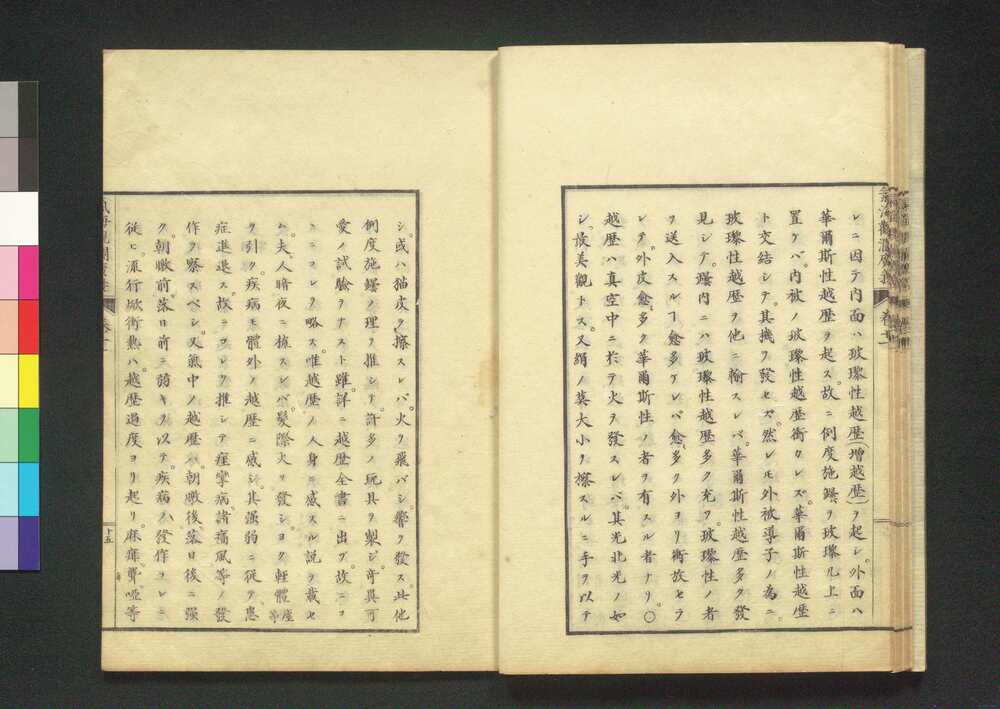 レニ因テ内面ハ玻瓈性越歴(增越歴)ヲ起シ。外面ハ
華爾斯性越歴ヲ起ス。故ニ例度施鑤ヲ玻瓈几上ニ
置ケバ。内被ノ玻瓈性越歴衝クレズ。華爾斯性越歴
ト交結シテ。其機ヲ發セズ。然レモ外被導子ノ為ニ。
玻瓈性越歴ヲ他ニ輸スレバ。華爾斯性越歴多ク發
見シテ。鑤内ニハ玻瓈性越歴多ク充ツ。玻瓈性ノ者
ヲ送入スルヿ愈多ケレバ。愈多ク外ヨリ衝放セラ
レテ。外皮愈多ク華爾斯性ノ者ヲ有スル者ナリ。〇
越歴ハ真空中ニ於テ火ヲ發スレバ。其光北光ノ如
シ。故美觀トス。又絹ノ莫大小ヲ擦スルニ手ヲ以テ
シ。或ハ猫皮ヲ擦スレバ。火ヲ飛バシ響ヲ發ス。此他
例度施鑤ノ理ヲ推シテ。許多ノ玩具ヲ製シ。奇異可
愛ノ試驗ヲナスト雖。詳ニ越歴全書ニ出ヅ。故ニコ
ヽニコレヲ略ス。唯越歴ノ人身ニ感スル説ヲ載セ
ム。夫人暗夜ニ梳スレバ。髮際火ヲ發シ。ヨク輕體塵等
ヲ引ク。疾病モ體外ノ越歴ニ感シ。其强弱ニ従テ。患
症進退ス。故ニコレヲ推シテ。痙攣病。諸痛風等ノ發
作ヲ察スベシ。又氣中ノ越歴ハ。朝暾後落日後ニ强
ク。朝暾前落日前ニ弱キヲ以テ。疾病ノ發作コレニ
従ヒ。流行焮衝熱ハ。越歴過度ヨリ起リ。麻痺。聾啞等
氣海觀瀾廣義
卷十一
十五